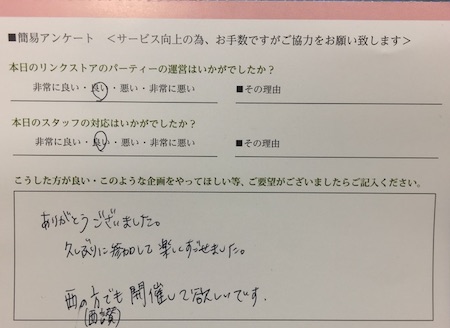 ■簡易アンケート ＜サービス向上の為、お手数ですがご協力をお願い致します＞
本日のリンクストアのパーティーの運営はいかがでしたか？
非常に良い・良い・悪い・非常に悪い ■その理由
本日のスタッフの対応はいかがでしたか？
非常に良い・良い・悪い・非常に悪い ■その理由
こうした方が良い・このような企画をやってほしい等、ご要望がございましたらご記入ください。
ありがとうございました。
久しぶりに参加して楽しくすごせました。
西の方でも開催して欲しいです.
(西讃)